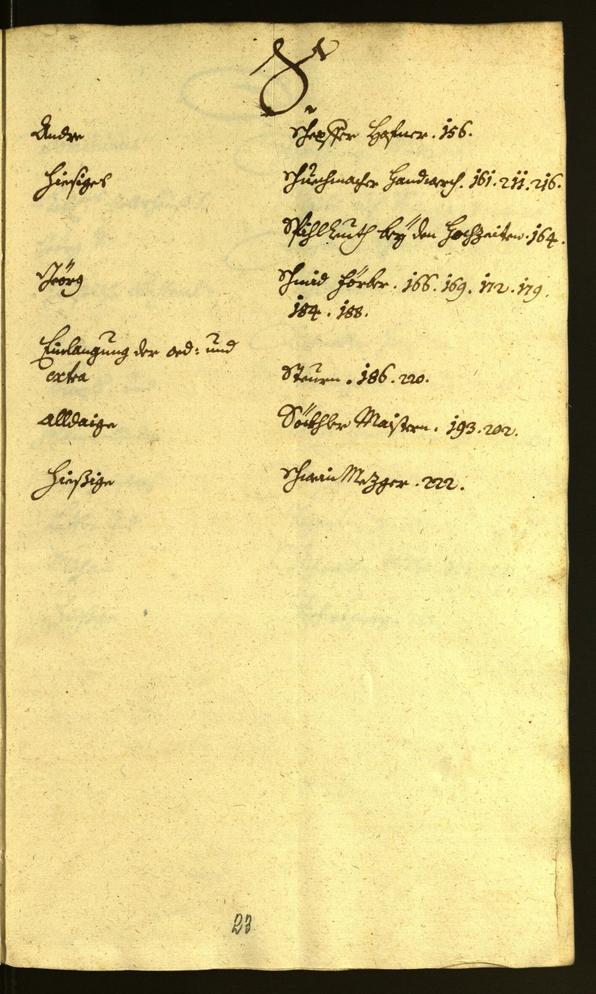 S
Andre Schepffer Hafner. 156.
Hiesiges Schuechmacher Handwerch. 161. 211. 216.
Spihlleuth bey den Hochzeiten. 164.
Geörg Schmid Förber. 166. 169. 172. 179.
184. 188.
Einlangung der ord: und
extra Steurn. 186. 220.
alldaige Maistern. 193. 202.
Hießige Schwein Mezger. 222.
23